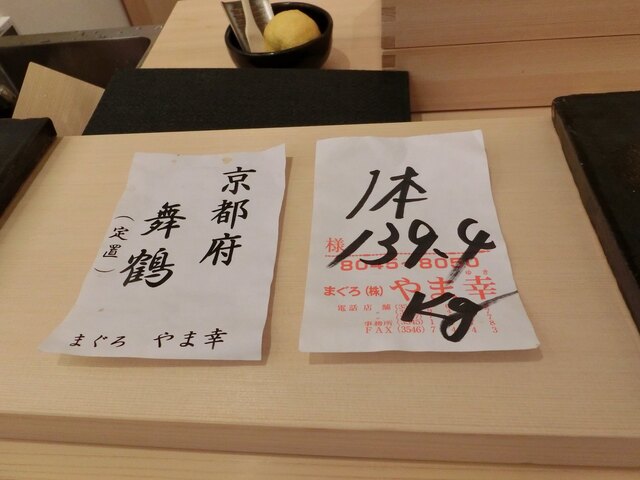 京都府
舞鶴
(定置)
まぐろ やま幸
1本
139.4
Kg
様
8045-8050
ゆき
まぐろ(株)やま幸
電話店舗
事務所(3545)
FAX(3546)7